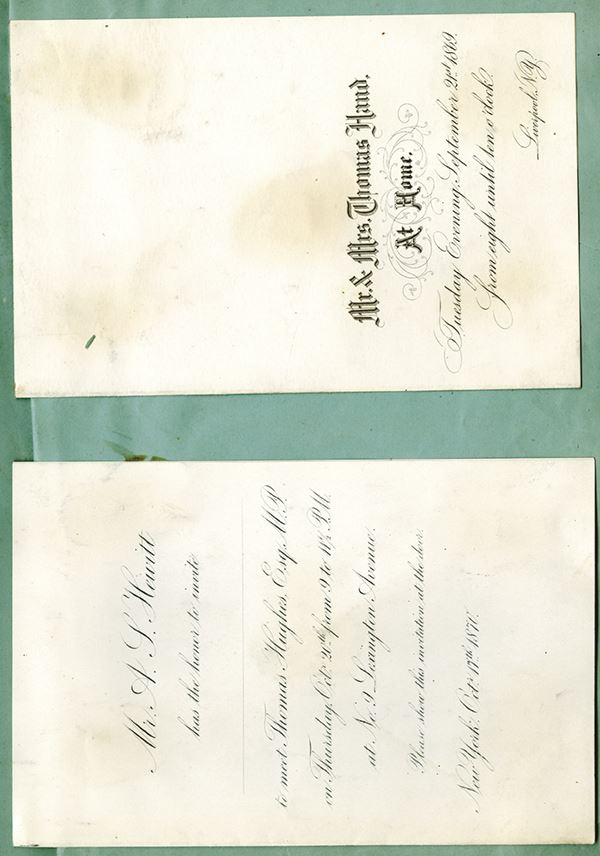 Mr. & Mrs. Thomas Hand,
At Home.
Tuesday Evening, September 21st 1869.
From eight until ten o'clock.
Liverpool, N.Y.
Mr. A. S. Hewitt
has the honor to invite
to meet Thomas Hughes, Esq. M.P.
on Thursday, Oct. 20th from 9 to 11½ P.M.
at No. 9 Lexington Avenue.
Please show this invitation at the door.
New York, Oct. 17th 1870.